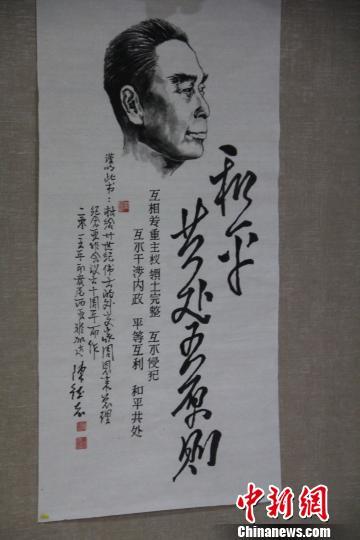 和平
共处五原则
互相尊重主权 领土完整 互不侵犯
互不干涉内政 平等互利 和平共处
谨以此书：敬绘廿世纪伟大的外交家周恩来总理
纪念亚非会议六十周年而作
二零一五年印度尼西亚雅加达
中新网
Chinanews.com